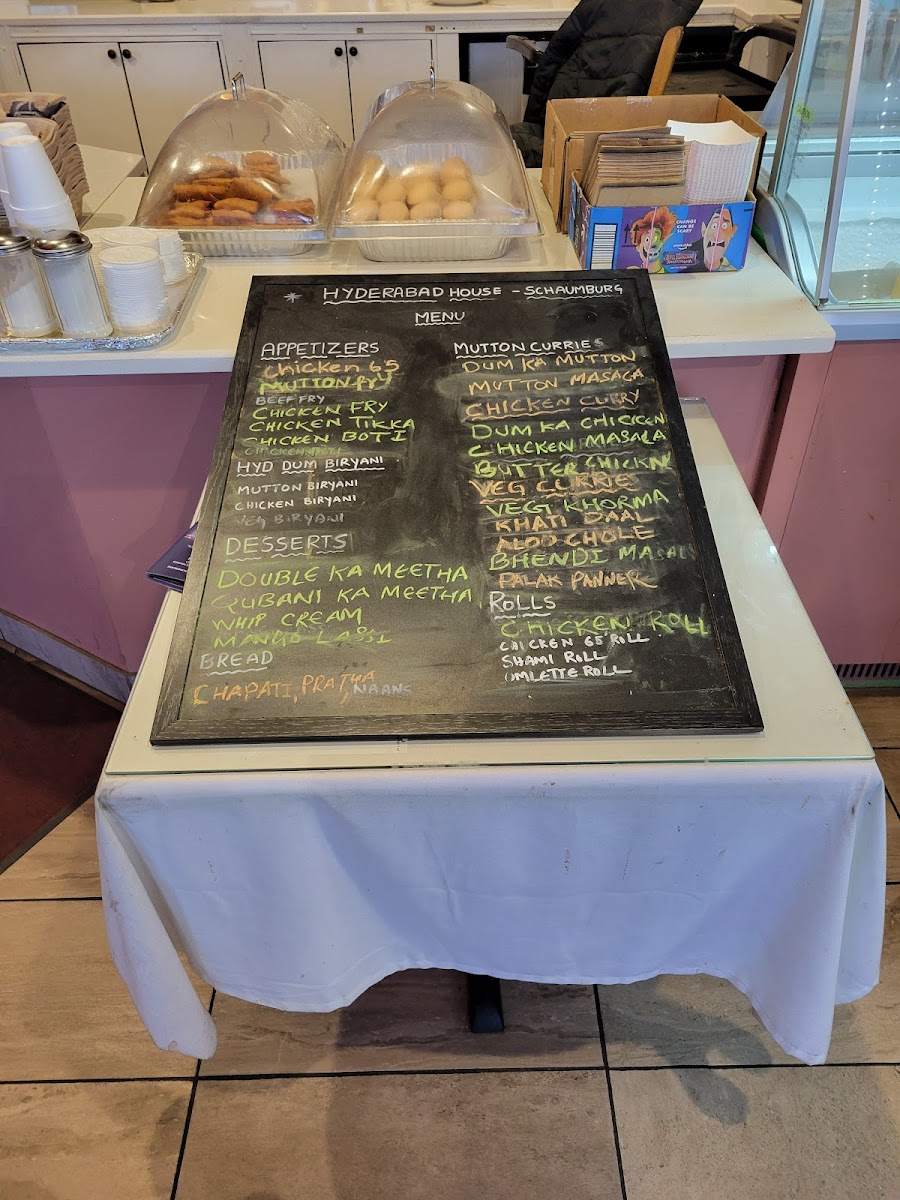 HYDERABAD HOUSE - SCHAUMBURG
MENU
APPETIZERS
Chicken 65
MUTTON FRY
BEEF FRY
CHICKEN FRY
CHICKEN TIKKA
CHICKEN BOTI
HYD DUM BIRYANI
MUTTON BIRYANI
CHICKEN BIRYANI
VEG BIRYANI
DESSERTS
DOUBLE KA MEETHA
QUBANI KA MEETHA
WHIP CREAM
MANGO LASSI
BREAD
CHAPATI, PRATHA, NAANS
MUTTON CURRIES
DUM KA MUTTON
MUTTON MASALA
CHICKEN CURRY
DUM KA CHICKEN
CHICKEN MASALA
BUTTER CHICKN
VEG CURRIE
VEGT KHORMA
KHATI DAAL
ALOO CHOLE
BHENDI MASAL
PALAK PANNER
ROLLS
CHICKEN ROLL
CHICKEN 65 ROLL
SHAMI ROLL
OMLETTE ROLL
CHANGE
CAN BE
SCARY